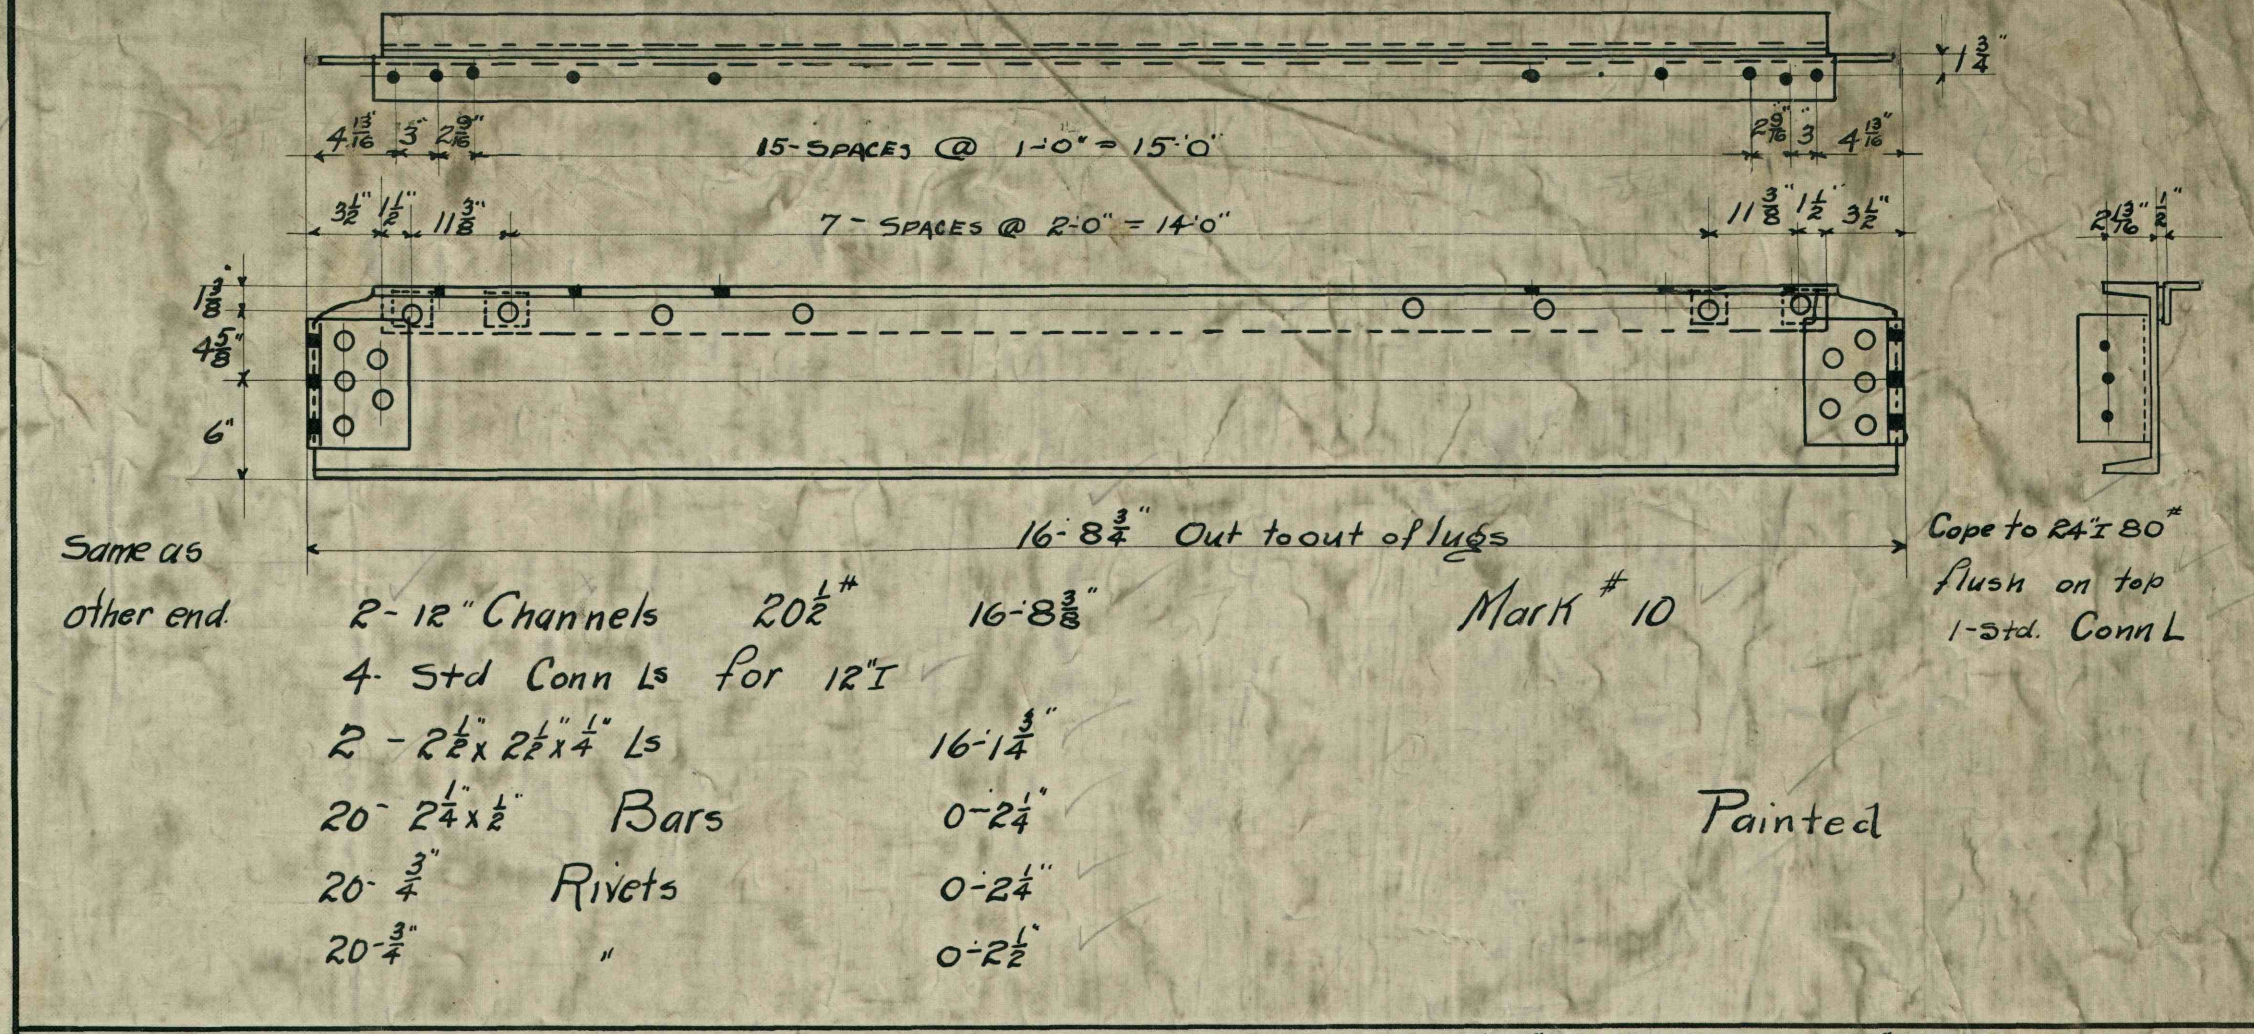 1 3/4"
4 13/16" 3" 2 9/16" 15-SPACES @ 1-0" = 15-0" 2 9/16" 3" 4 13/16"
3 1/2" 1 1/2" 11 3/8" 7 - SPACES @ 2-0" = 14-0" 11 3/8" 1 1/2" 3 1/2"
2 13/16" 1/2"
1 3/8"
4 5/8"
6"
16-8 3/4" Out to out of lugs
Same as
other end.
Cope to 24" I 80#
flush on top
1-Std. Conn L
2-12" Channels 20 1/2# 16-8 3/8"
Mark #10
4- Std Conn Ls for 12" I
2 - 2 1/2" x 2 1/2" x 1/4" Ls 16-1 3/4"
20- 2 1/4" x 1/2" Bars 0-2 1/4"
Painted
20- 3/4" Rivets 0-2 1/4"
20- 3/4" " 0-2 1/2"